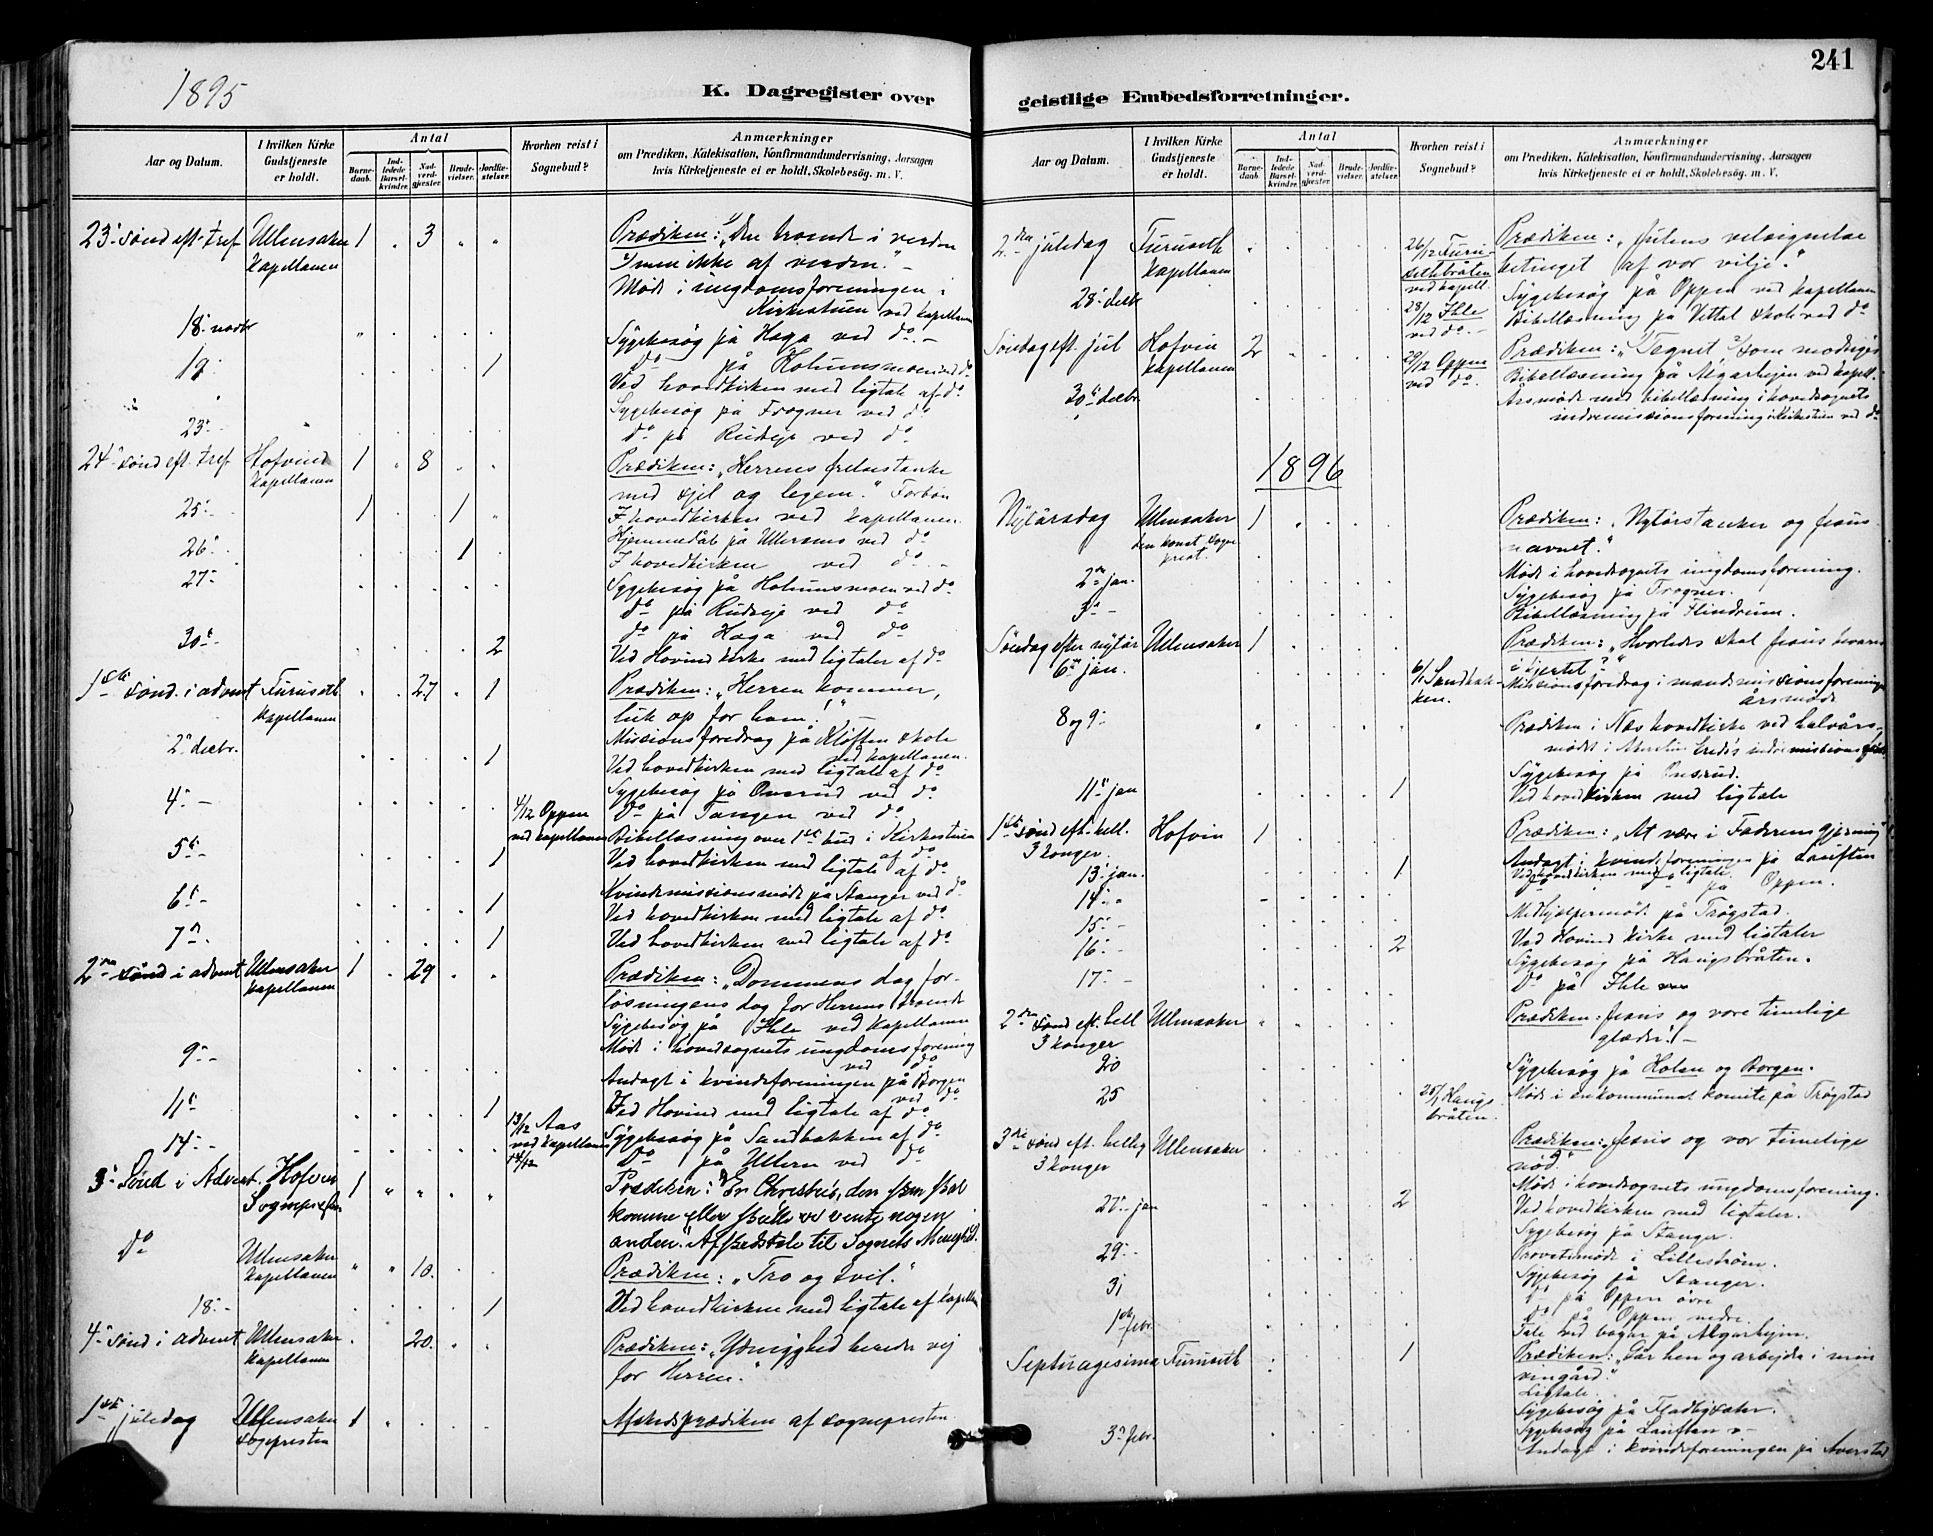 1895
K. Dagregister over
Aar og Datum.
I hvilken Kirke Gudstjeneste er holdt.
Antal
Barnedaab.
Indledede Barselkvinder.
Nadverdgjester.
Brudevielser.
Jordfæstelser.
Hvorhen reist i Sognebud?
Anmærkninger
om Prædiken, Katekisation, Konfirmandundervisning, Aarsagen
hvis Kirketjeneste ei er holdt, Skolebesøg. m. V.
23: sønd eft. tref Ullensaker 1 3 Prædiken: "Den troende i verden
kapellanen men ikke af verden."
Møde i ungdomsforeningen i
Kirkestuen ved kapellanen
18: novbr Sygebesøg på Haga ved do
19: 1 do på Holumsmoen ved do
Ved hovedkirken med ligtale af do
Sygebesøg på Frogner ved do
23: do på Rudsje ved do
24: sønd eft. tref Hofvind 1 8 Prædiken: "Herrens frelsestanke
kapellanen med sjel og legem." Forbøn
25: 1 1 I hovedkirken ved kapellanen
Hjemmedåb på Ullerens ved do
26: 1 I hovedkirken ved do
27: Sygebesøg på Holumsmoen ved do
do på Rudsje ved do
do på Haga ved do
30: 2 Ved Hovind kirke med ligtaler af do
1ste sønd. i advent Furuseth 27 1 Prædiken: "Herren kommer,
kapellanen luk op for ham!"
Missionsforedrag på Kløften skole
ved kapellanen.
2: decbr. 1 Ved hovedkirken med ligtale af do
Sygebesøg på Onsrud ved do
4: 4/12 Oppen do på Tangen ved do
ved kapellanen Bibellæsning over 1ste bud i Kirkestuen
af do
5: 1 Ved hovedkirken med ligtale af do
Kvindemissionsmøde på Stanger ved do
6: 1 Ved hovedkirken med ligtale af do
7: 1 Ved hovedkirken med ligtale af do
2den sønd i advent Ullensaker 1 29 Prædiken: "Dommens dag for-
kapellanen løsningens dag for Herrens troende
Sygebesøg på Ihle ved kapellanen
9: Møde i hovedsognets ungdomsforening
ved do
Andagt i kvindeforeningen på Borgen
ved do
11: 1 Ved Hovind med ligtale af do
13/12 Aas
ved kapellanen Sygebesøg på Sandbakken af do
14: 14/12 do på Ullern ved do
3: Sønd i Advent. Hofven 1 Prædiken: "Er Christus, den som skal
Sognepresten komme eller skulle vi vente nogen
anden." Afskedstale til Sognets Menighd.
do Ullensaker 10. Prædiken: "Tro og tvil."
kapellanen
18: 1 Ved hovedkirken med ligtale af kapellan
4: sønd i advent Ullensaker 20. Prædiken: "Ydmyghed bereder vej
kapellanen for Herren."
1ste juledag Ullensaker 1 Afskedsprædiken af sognepresten
sogepresten
241
geistlige Embedsforretninger.
Aar og Datum.
I hvilken Kirke Gudstjeneste er holdt.
Antal
Barnedaab.
Indledede Barselkvinder.
Nadverdgjester.
Brudevielser.
Jordfæstelser.
Hvorhen reist i Sognebud?
Anmærkninger
om Prædiken, Katekisation, Konfirmandundervisning, Aarsagen
hvis Kirketjeneste ei er holdt, Skolebesøg. m. V.
2den juledag Furuseth 26/12 Furusethbråten Prædiken: "Julens velsignelse
kapellanen ved kapell. betinget af vor vilje."
28: decbr 28/12 Ihle Sygebesøg på Oppen ved kapellanen
ved do. Bibellæsning på Vittal skole ved do
Søndag eft. jul Hofven 2 29/12 Oppen Prædiken: "Tegnet, som modsiges
kapellanen ved do. Bibellæsning på Algarhejm ved kapell.
30: decbr. Årsmøde med bibellæsning i hovedsognets
indremissionsforening i Kirkestuen ved do
1896
Nytårsdag Ullensaker 1 Prædiken: "Nytårstanker og Jesus-
den konst. sogneprest. navnet."
2: jan. Møde i hovedsognets ungdomsforening.
Sygebesøg på Frogner.
3: Bibellæsning på Flindrum.
Søndag efter nytår Ullensaker 1 Prædiken: "Hvorledes skal Jesus bevares
i hjertet?"
6: jan. 6/1 Sandbakken. Missionsforedrag i mandsmissionsforeningens
årsmøde
8 og 9: Prædiken i Næs hovedkirke ved halvårs-
møde i indremissions
Sygebesøg på Onsrud.
11: jan 1 Ved hovedkirken med ligtale
1ste sønd eft. hell. Hofvin 1 Prædiken: "At være i Faderens gjerning"
3 konger. Andagt i kvindeforeningen på Lauften
13: jan. 1 Ved hovedkirken med ligtale
på Oppen.
14: Medhjælpermøde på Trøgstad.
15: Ved Hovind kirke med ligtaler
16: 2 Sygebesøg på Haugsbråten.
17: Do på Ihle
2den sønd eft. hell Ullensaker Prædiken: Jesus og vore timelige
3 konger glæder! -
20 Sygebesøg på Holen og Borgen.
25 25/1 Haugsbråten. Møde i en kommunal komite på Trøgstad
3die sønd eft. hellig Ullensaker Prædiken: Jesus og vor timelige
3 konger nød."
Møde i hovedsognets ungdomsforening.
27: jan 2 Ved hovedkirken med ligtaler.
Sygebesøg på Stanger.
29: Provstemøde i Lillestrøm.
Sygebesøg på Stanger.
31 do på Oppen øvre
do på Oppen nedre.
1ste febr. Tale ved bøgar på Algarhejm.
Septuagesima Furuseth 1 Prædiken: "Går hen og arbejder i min
vingård."
Ligtale.
Sygebesøg på Fladbysæter.
3: febr. Sygebesøg på Lauften
Andagt i kvindeforeningen på Averstad